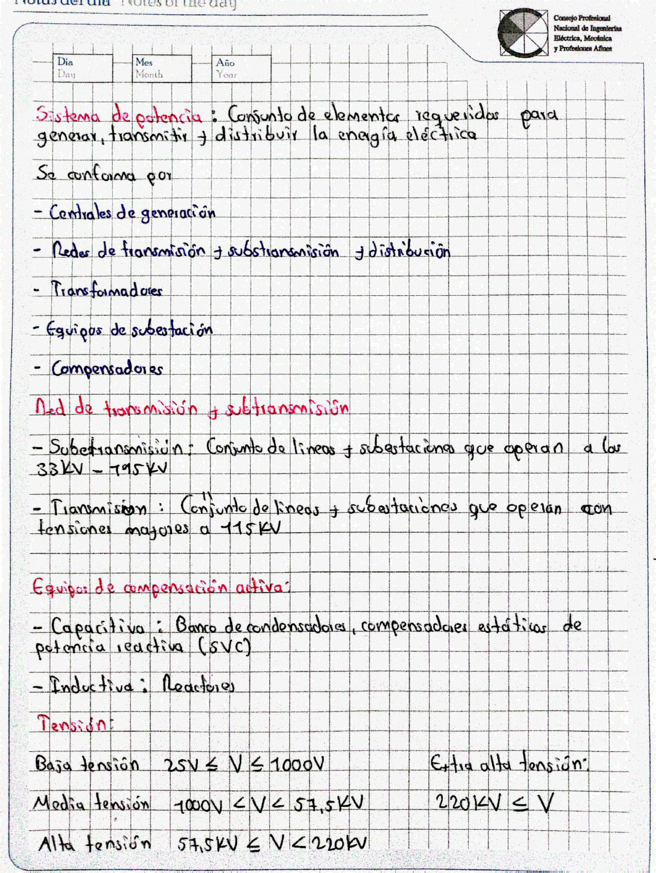 Notas del día Notes of the day
Consejo Profesional
Nacional de Ingenierías
Eléctrica, Mecánica
y Profesiones Afines
Día Mes Año
Day Month Year
Sistema de potencia: Conjunto de elementos requeridos para
generar, transmitir y distribuir la energía eléctrica
Se conforma por
- Centrales de generación
- Redes de transmisión y substransmisión y distribución
- Transformadores
- Equipos de subestación
- Compensadores
Red de transmisión y subtransmisión
- Subetransmisión: Conjunto de lineas y subestaciones que operan a los
33KV - 115KV
- Transmision: Conjunto de lineas y subestaciones que operan con
tensiones mayores a 115KV
Equipos de compensación activa:
- Capacitiva: Banco de condensadores, compensadores estáticos de
potencia reactiva (SVC)
- Inductiva: Reactores
Tensión:
Baja tensión 25V ≤ V ≤ 1000V Extra alta tensión:
Media tensión 1000V < V < 57,5KV 220KV ≤ V
Alta tensión 57,5KV ≤ V < 220KV